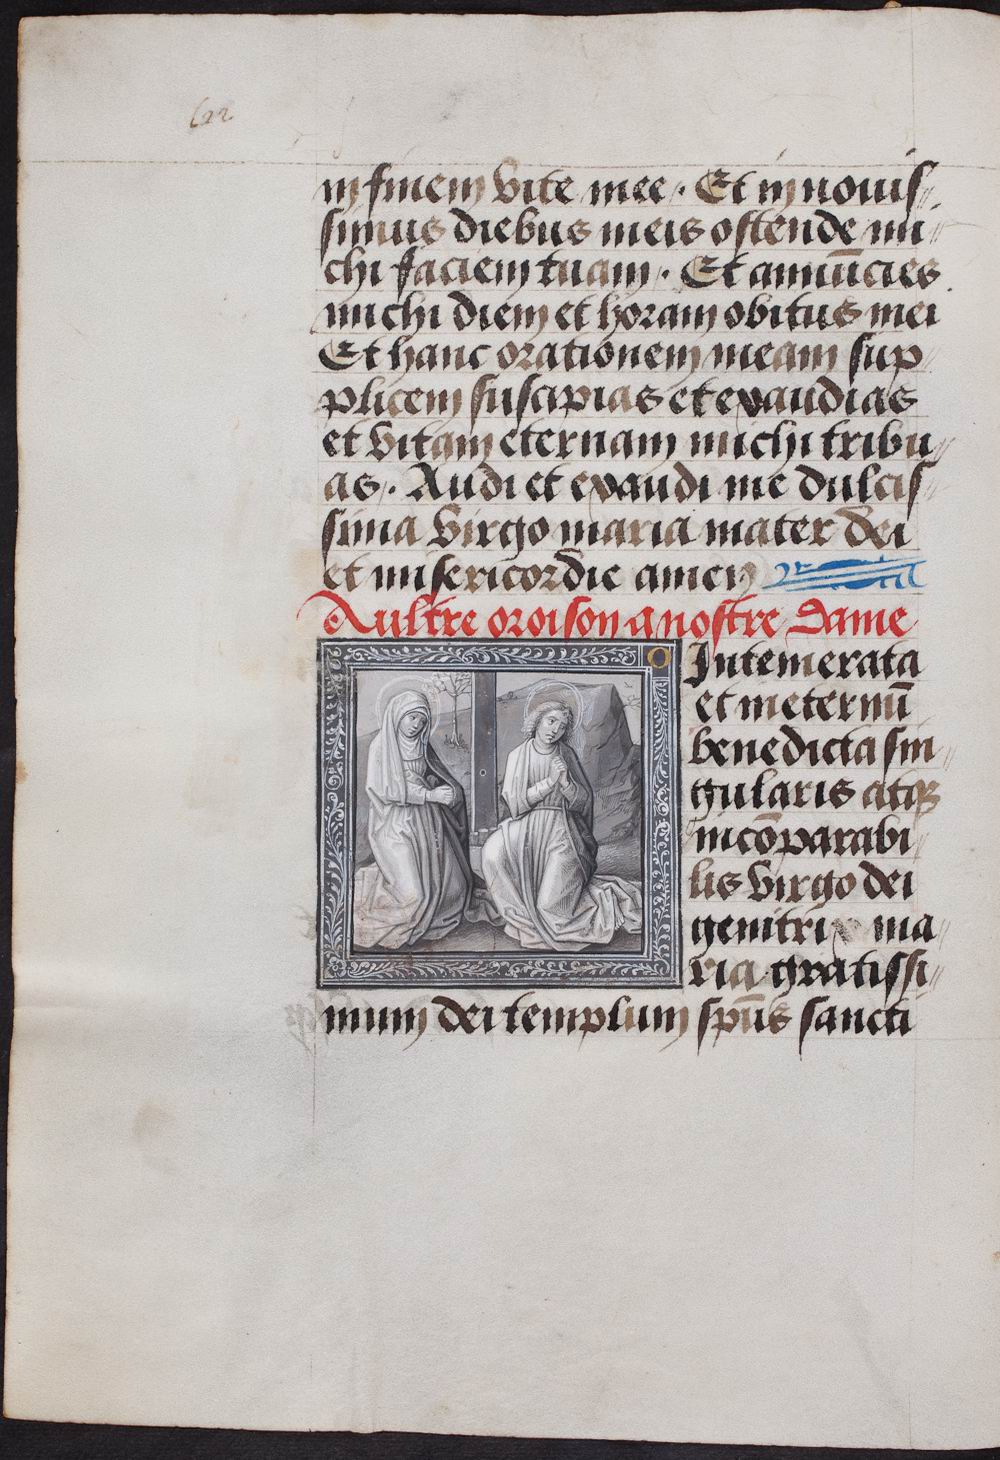 in finem vite mee. Et in nouis
simis diebus meis ostende mi
chi faciem tuam. Et annūcies
michi diem et horam obitus mei
Et hanc orationem meam sup
plicem suscipias et exaudias
et vitam eternam michi tribu
as. Audi et exaudi me dulcis
sima virgo maria mater dei
et misericordie amen
Aultre oroison a nostre dame
O Intemerata
et in eternū
benedicta sin
gularis atqꝫ
incōparabi
lis virgo dei
genitrix ma
ria gratissi
mum dei templum spūs sancti